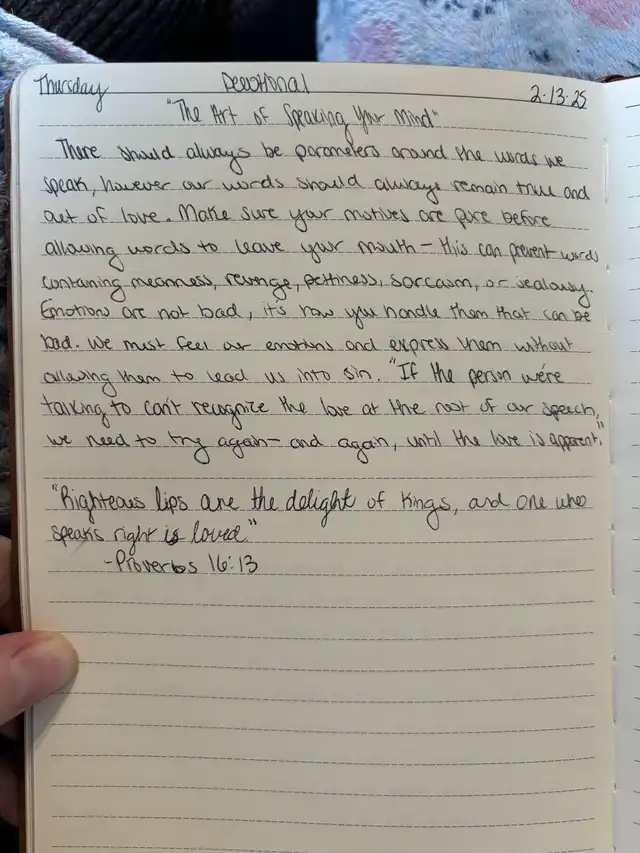 Thursday Devotional 2-13-25
"The Art of Speaking Your Mind"
There should always be parameters around the words we
speak, however our words should always remain true and
out of love. Make sure your motives are pure before
allowing words to leave your mouth - this can prevent words
containing meanness, revenge, pettiness, sarcasm, or jealousy.
Emotions are not bad, it's how you handle them that can be
bad. We must feel our emotions and express them without
allowing them to lead us into sin. "If the person we're
talking to can't recognize the love at the root of our speech,
we need to try again - and again, until the love is apparent."
"Righteous lips are the delight of Kings, and one who
speaks right is loved"
-Proverbs 16:13